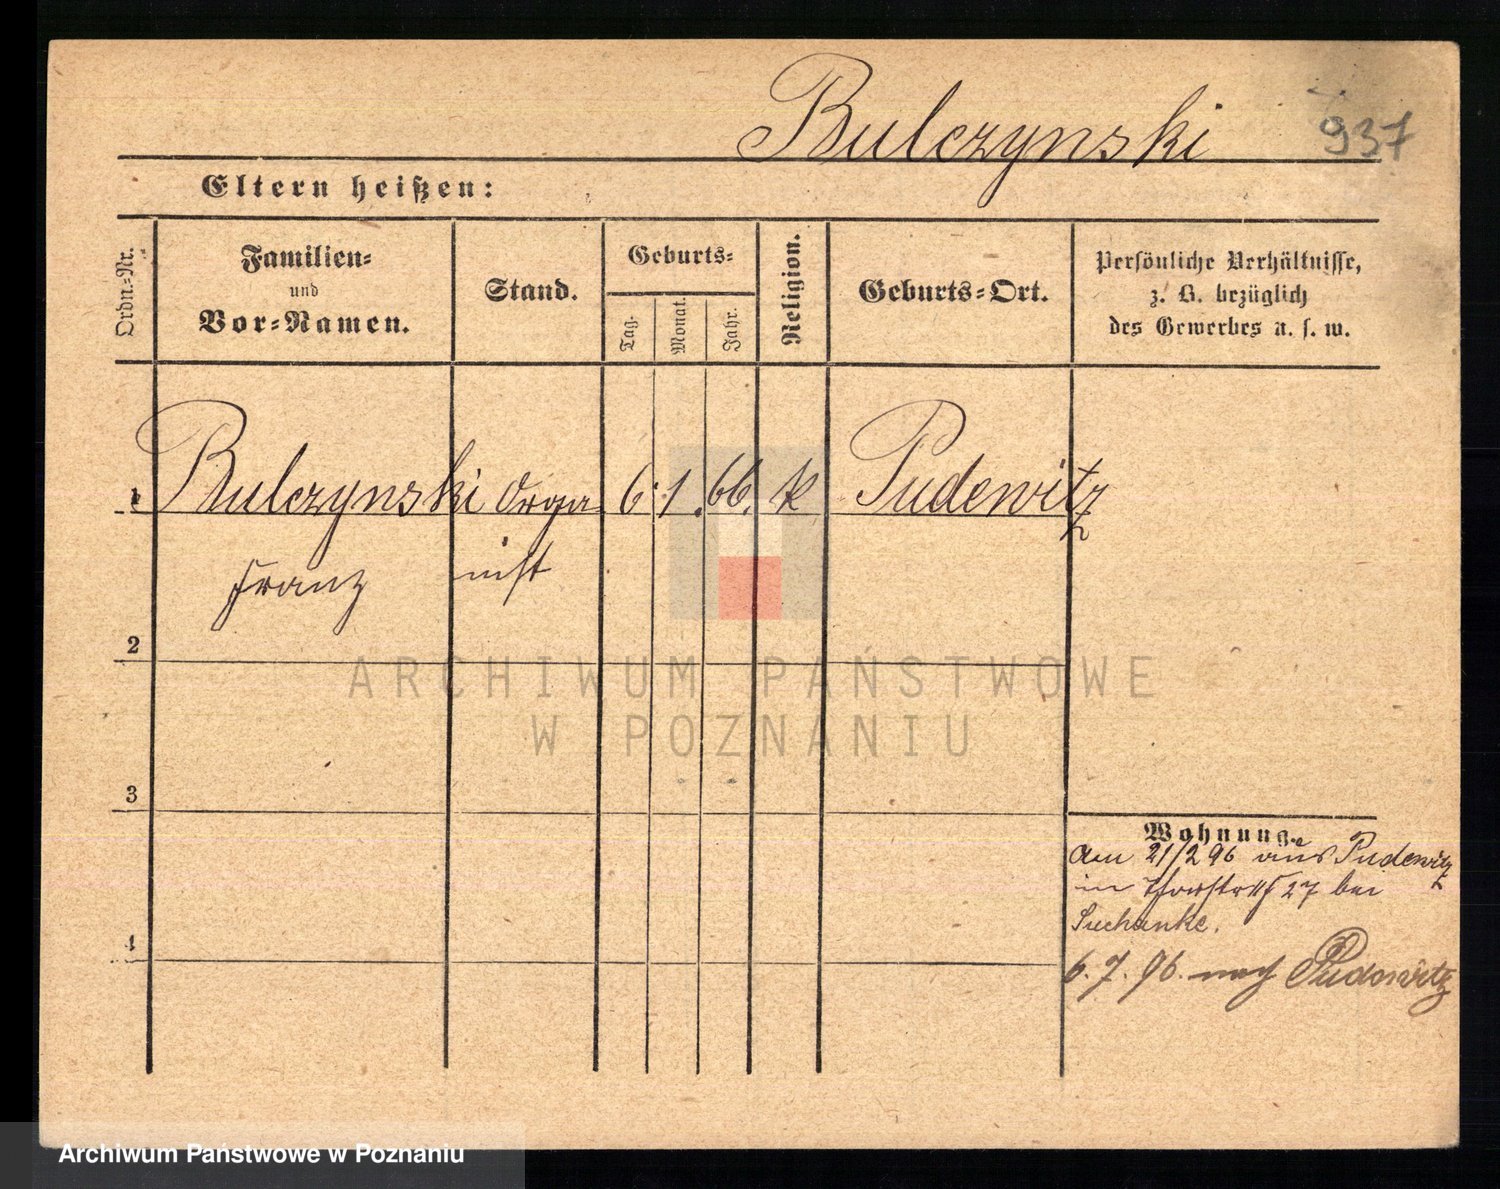 Bulczynski
937
Eltern heißen:
Ordn.-Nr.
Familien-
und
Vor-Namen.
Stand.
Geburts-
Tag.
Monat.
Jahr.
Religion.
Geburts-Ort.
Persönliche Verhältnisse,
z. B. bezüglich
des Gewerbes u. s. w.
1 Bulczynski Orga- 6. 1. 66. k Pudewitz
Franz nist
2
3
4
Wohnung.
Am 21/2 96 aus Pudewitz
in 27 bei
Suchanke.
6. 7. 96. nach Pudewitz
ARCHIWUM PAŃSTWOWE
W POZNANIU
Archiwum Państwowe w Poznaniu